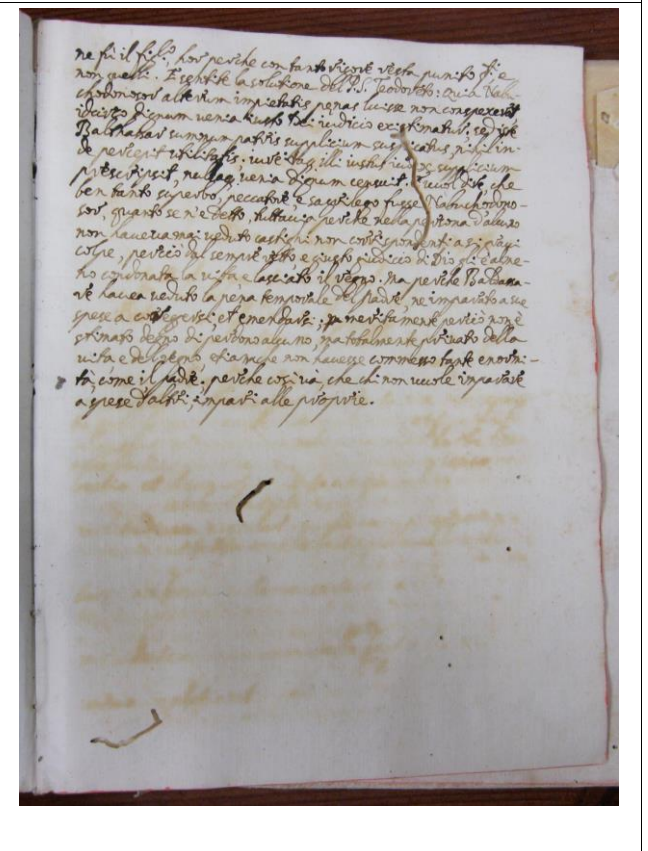 ne fù il figl.º, hor perche con tanto rigore resta punito
non quelli. E sentite la solutione del P. S. Teodoreto: quia Nab-
chodonosor alterium impietatis penas luisse non conspexerit
idcirco dignum venia iusto Dei iudicio existimatur, sed
Balthasar summum patris supplicium nihil in-
de percepit utilitatis. iure illi iustus supplicium
prescripsit, nullaq venia dignum censuit. Vuol dire, che
ben tanto superbo, peccatore, e sacrilego fusse Nabuchodono-
sor, quanto se n'è detto, tuttavia perche nella persona d'alcuno
non haveva mai veduto castighi non corrispondenti a si gravi
colpe, perciò dal sempre retto e giusto giudicio di Dio gli è alme-
no condonata la vita e lasciato il regno. Ma perche Baldassa-
re havea veduto la pena temporale del padre, ne imparato a sue
spese a corregersi, et emendarsi, meritamente perciò non è
stimato degno di perdono alcuno, ma totalmente privato della
vita e del regno, etiam che non havesse commesso tante enormi-
tà, come il padre. perche così và, che chi non vuole imparare
a spese d'altri, impari alle proprie.